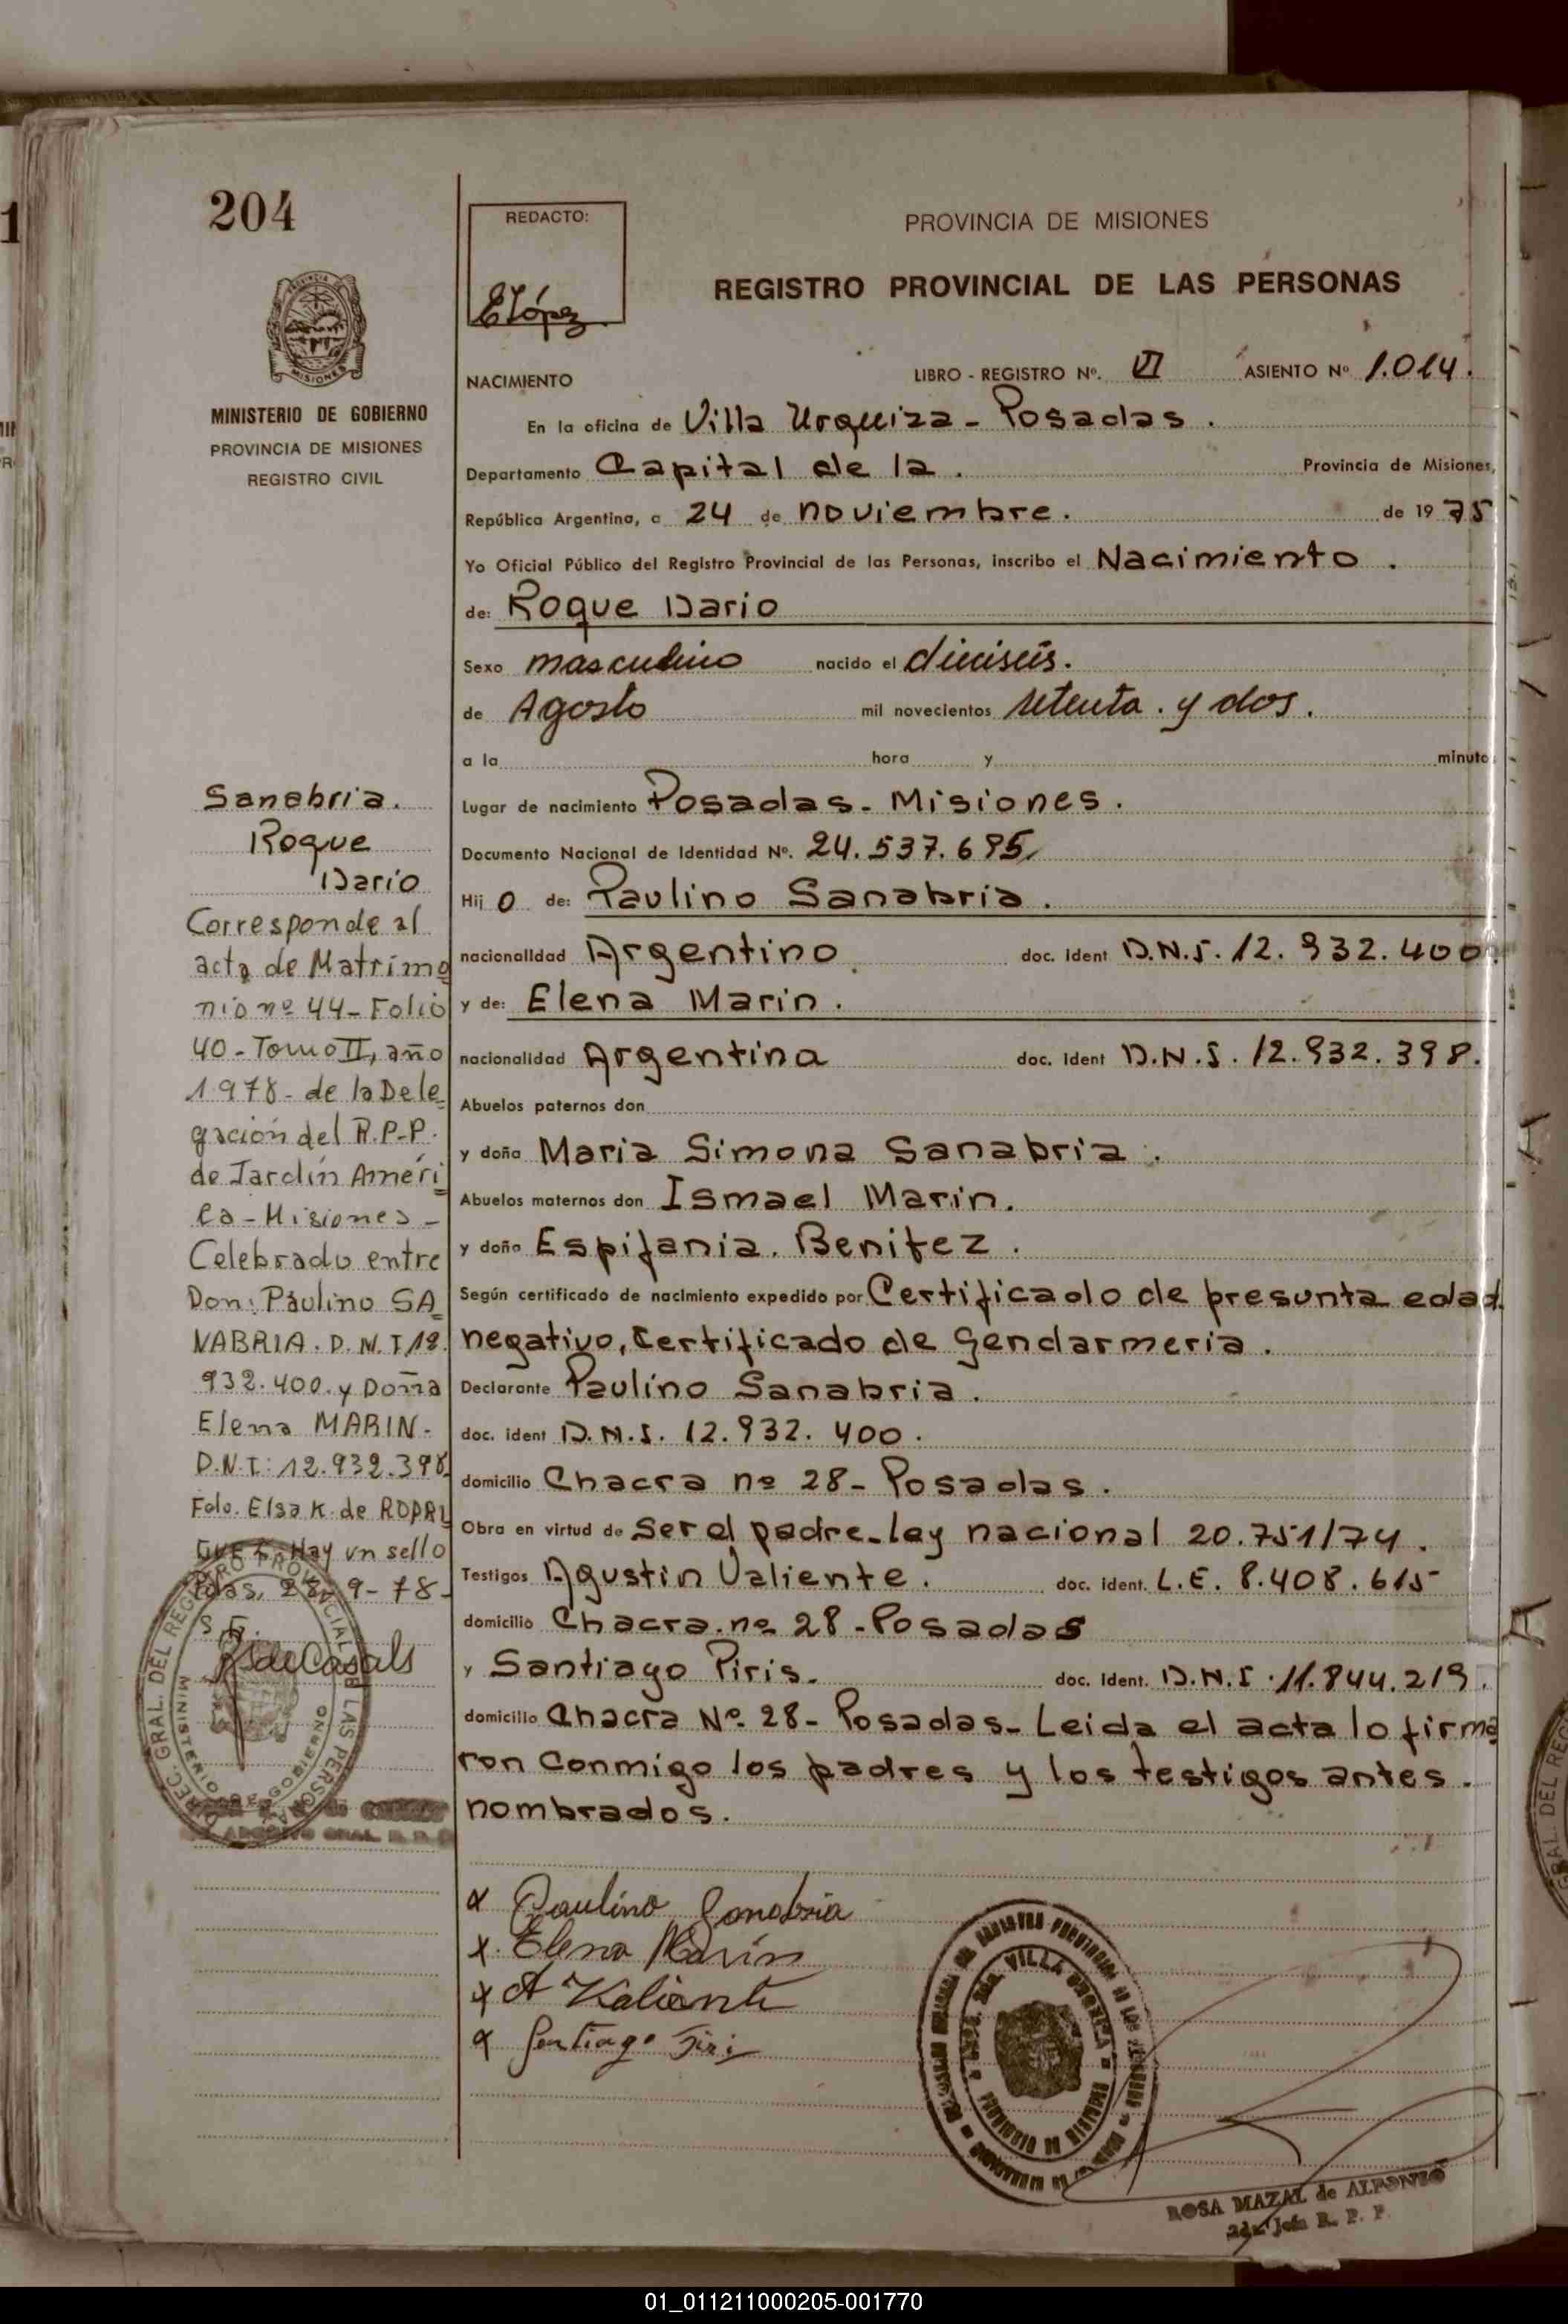 204
REDACTO:
ELópez
PROVINCIA DE MISIONES
REGISTRO PROVINCIAL DE LAS PERSONAS
MISIONES
MINISTERIO DE GOBIERNO
PROVINCIA DE MISIONES
REGISTRO CIVIL
NACIMIENTO
LIBRO - REGISTRO Nº. VI ASIENTO Nº 1.014.
En la oficina de Villa Urquiza - Posadas.
Departamento Capital de la. Provincia de Misiones,
República Argentina, a 24 de noviembre. de 19 75
Yo Oficial Público del Registro Provincial de las Personas, inscribo el Nacimiento.
de: Roque Dario
Sexo masculino nacido el dieciseis.
de Agosto mil novecientos setenta. y dos.
a la hora y minuto
Lugar de nacimiento Posadas - Misiones.
Documento Nacional de Identidad Nº. 24.537.695
Hij o de: Paulino Sanabria.
nacionalidad Argentino. doc. ident D.N.I. 12.932.400.
y de: Elena Marin.
nacionalidad Argentina doc. ident D.N.I. 12.932.398.
Abuelos paternos don
y doña Maria Simona Sanabria.
Abuelos maternos don Ismael Marin.
y doña Espifania. Benitez.
Según certificado de nacimiento expedido por Certificado de presunta edad
negativo, Certificado de Gendarmeria.
Declarante Paulino Sanabria.
doc. ident D.N.I. 12.932.400.
domicilio Chacra nº 28 - Posadas.
Obra en virtud de ser el padre - ley nacional 20.751/74.
Testigos Agustin Valiente. doc. ident. L.E. 8.408.615
domicilio Chacra. nº 28 - Posadas
y Santiago Piris. doc. ident. D.N.I. 11.844.219.
domicilio Chacra Nº 28 - Posadas - Leida el acta lo firma
ron conmigo los padres y los testigos antes.
nombrados.
Sanabria.
Roque
Dario
Corresponde al
acta de Matrimo
nio nº 44 - Folio
40 - Tomo II, año
1978 - de la Dele
gación del R.P.P.
de Jardín Améri
ca - Misiones -
Celebrado entre
Don: Paulino SA
NABRIA. D.N.I 12.
932.400. y Doña
Elena MARIN -
D.N.I: 12.932.398
Fdo. Elsa K. de
Hay un sello
Pdas, 28 - 9 - 78 -
de Casals
x Paulino Sanabria
x. Elena Marin
x A Valiente
x Santiago Piris
VILLA URQUIZA
ROSA MAZAL de ALFONZO
R. P. P.
01_011211000205-001770